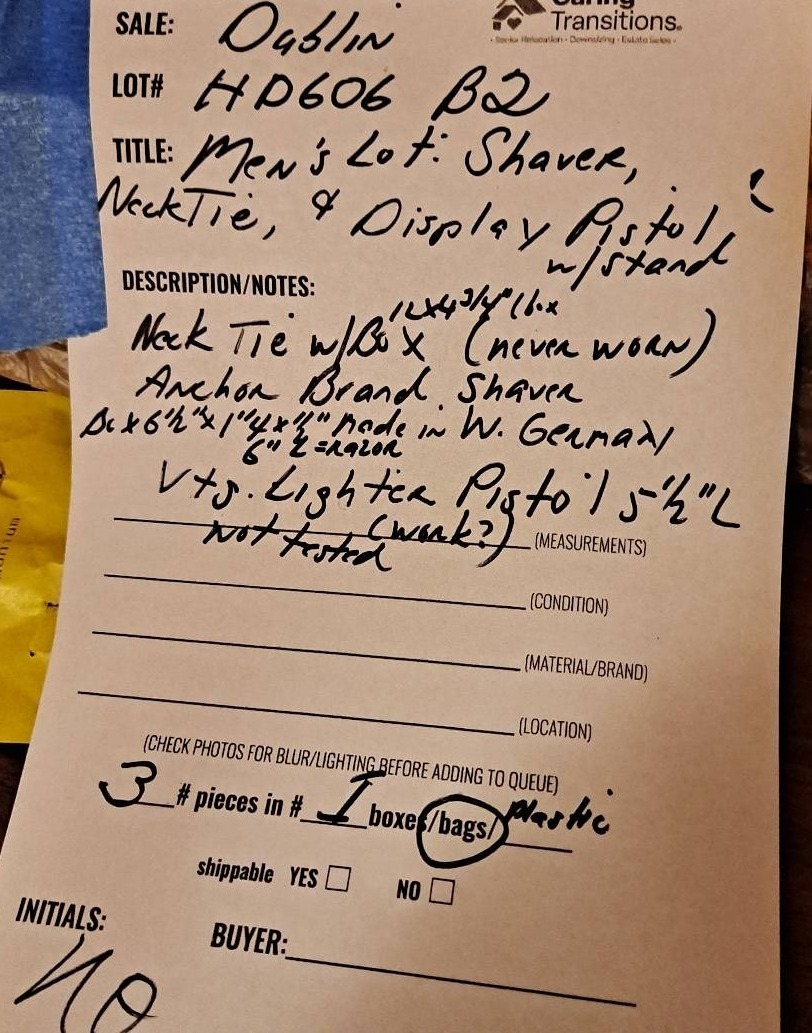 Caring
Transitions.
• Senior Relocation • Downsizing • Estate Sales •
SALE: Dublin
LOT# HD606 B2
TITLE: Men's Lot: Shaver,
Neck Tie, & Display Pistol
w/stand
DESCRIPTION/NOTES:
12x4 3/4" (bx
Neck Tie w/Box (never worn)
Anchor Brand Shaver
Bx 6½"x1"4x½" made in W. Germany
6" L = razor
Vtg. Lighter Pistol 5½"L
(work?) (MEASUREMENTS)
Not tested
(CONDITION)
(MATERIAL/BRAND)
(LOCATION)
(CHECK PHOTOS FOR BLUR/LIGHTING BEFORE ADDING TO QUEUE)
3 # pieces in # 1 boxes/bags/ plastic
shippable YES NO
INITIALS: BUYER: